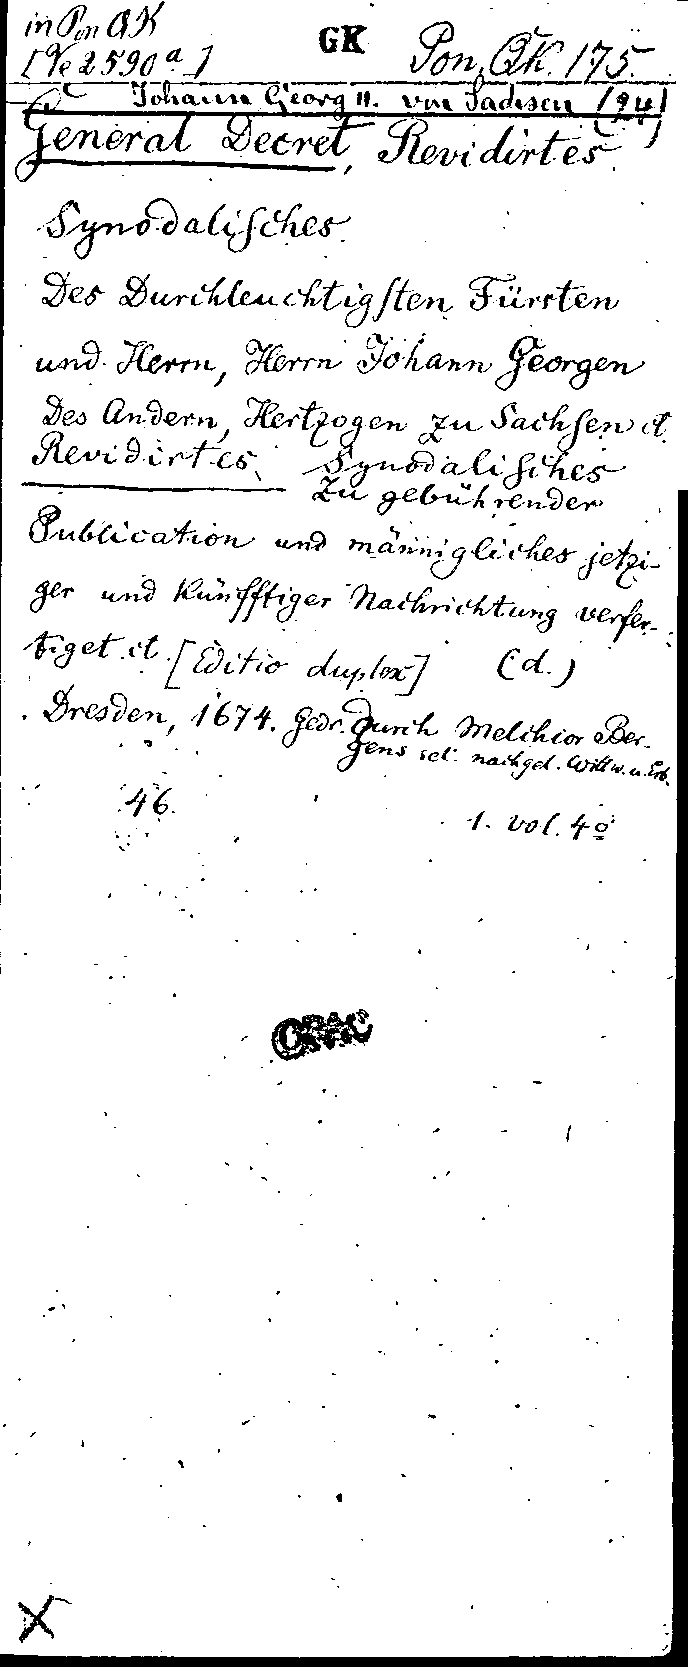 in Pon QK
[Ve 2590 a]
GK
Pon QK. 175.
Johann Georg II. von Sachsen (24)
General Decret, Revidirtes
Synodalisches
Des Durchleuchtigsten Fürsten
und Herrn, Herrn Johann Georgen
Des Andern, Hertzogen zu Sachsen
Revidirtes Synodalisches
zu gebührender
Publication und männigliches jetzi-
ger und künfftiger Nachrichtung verfer-
tiget [Editio duplex] (d.)
Dresden, 1674. Gedr. durch Melchior Ber-
gens sel. nachgel. Wittw. u. Erb.
46.
1. vol. 4º
OPAC
X